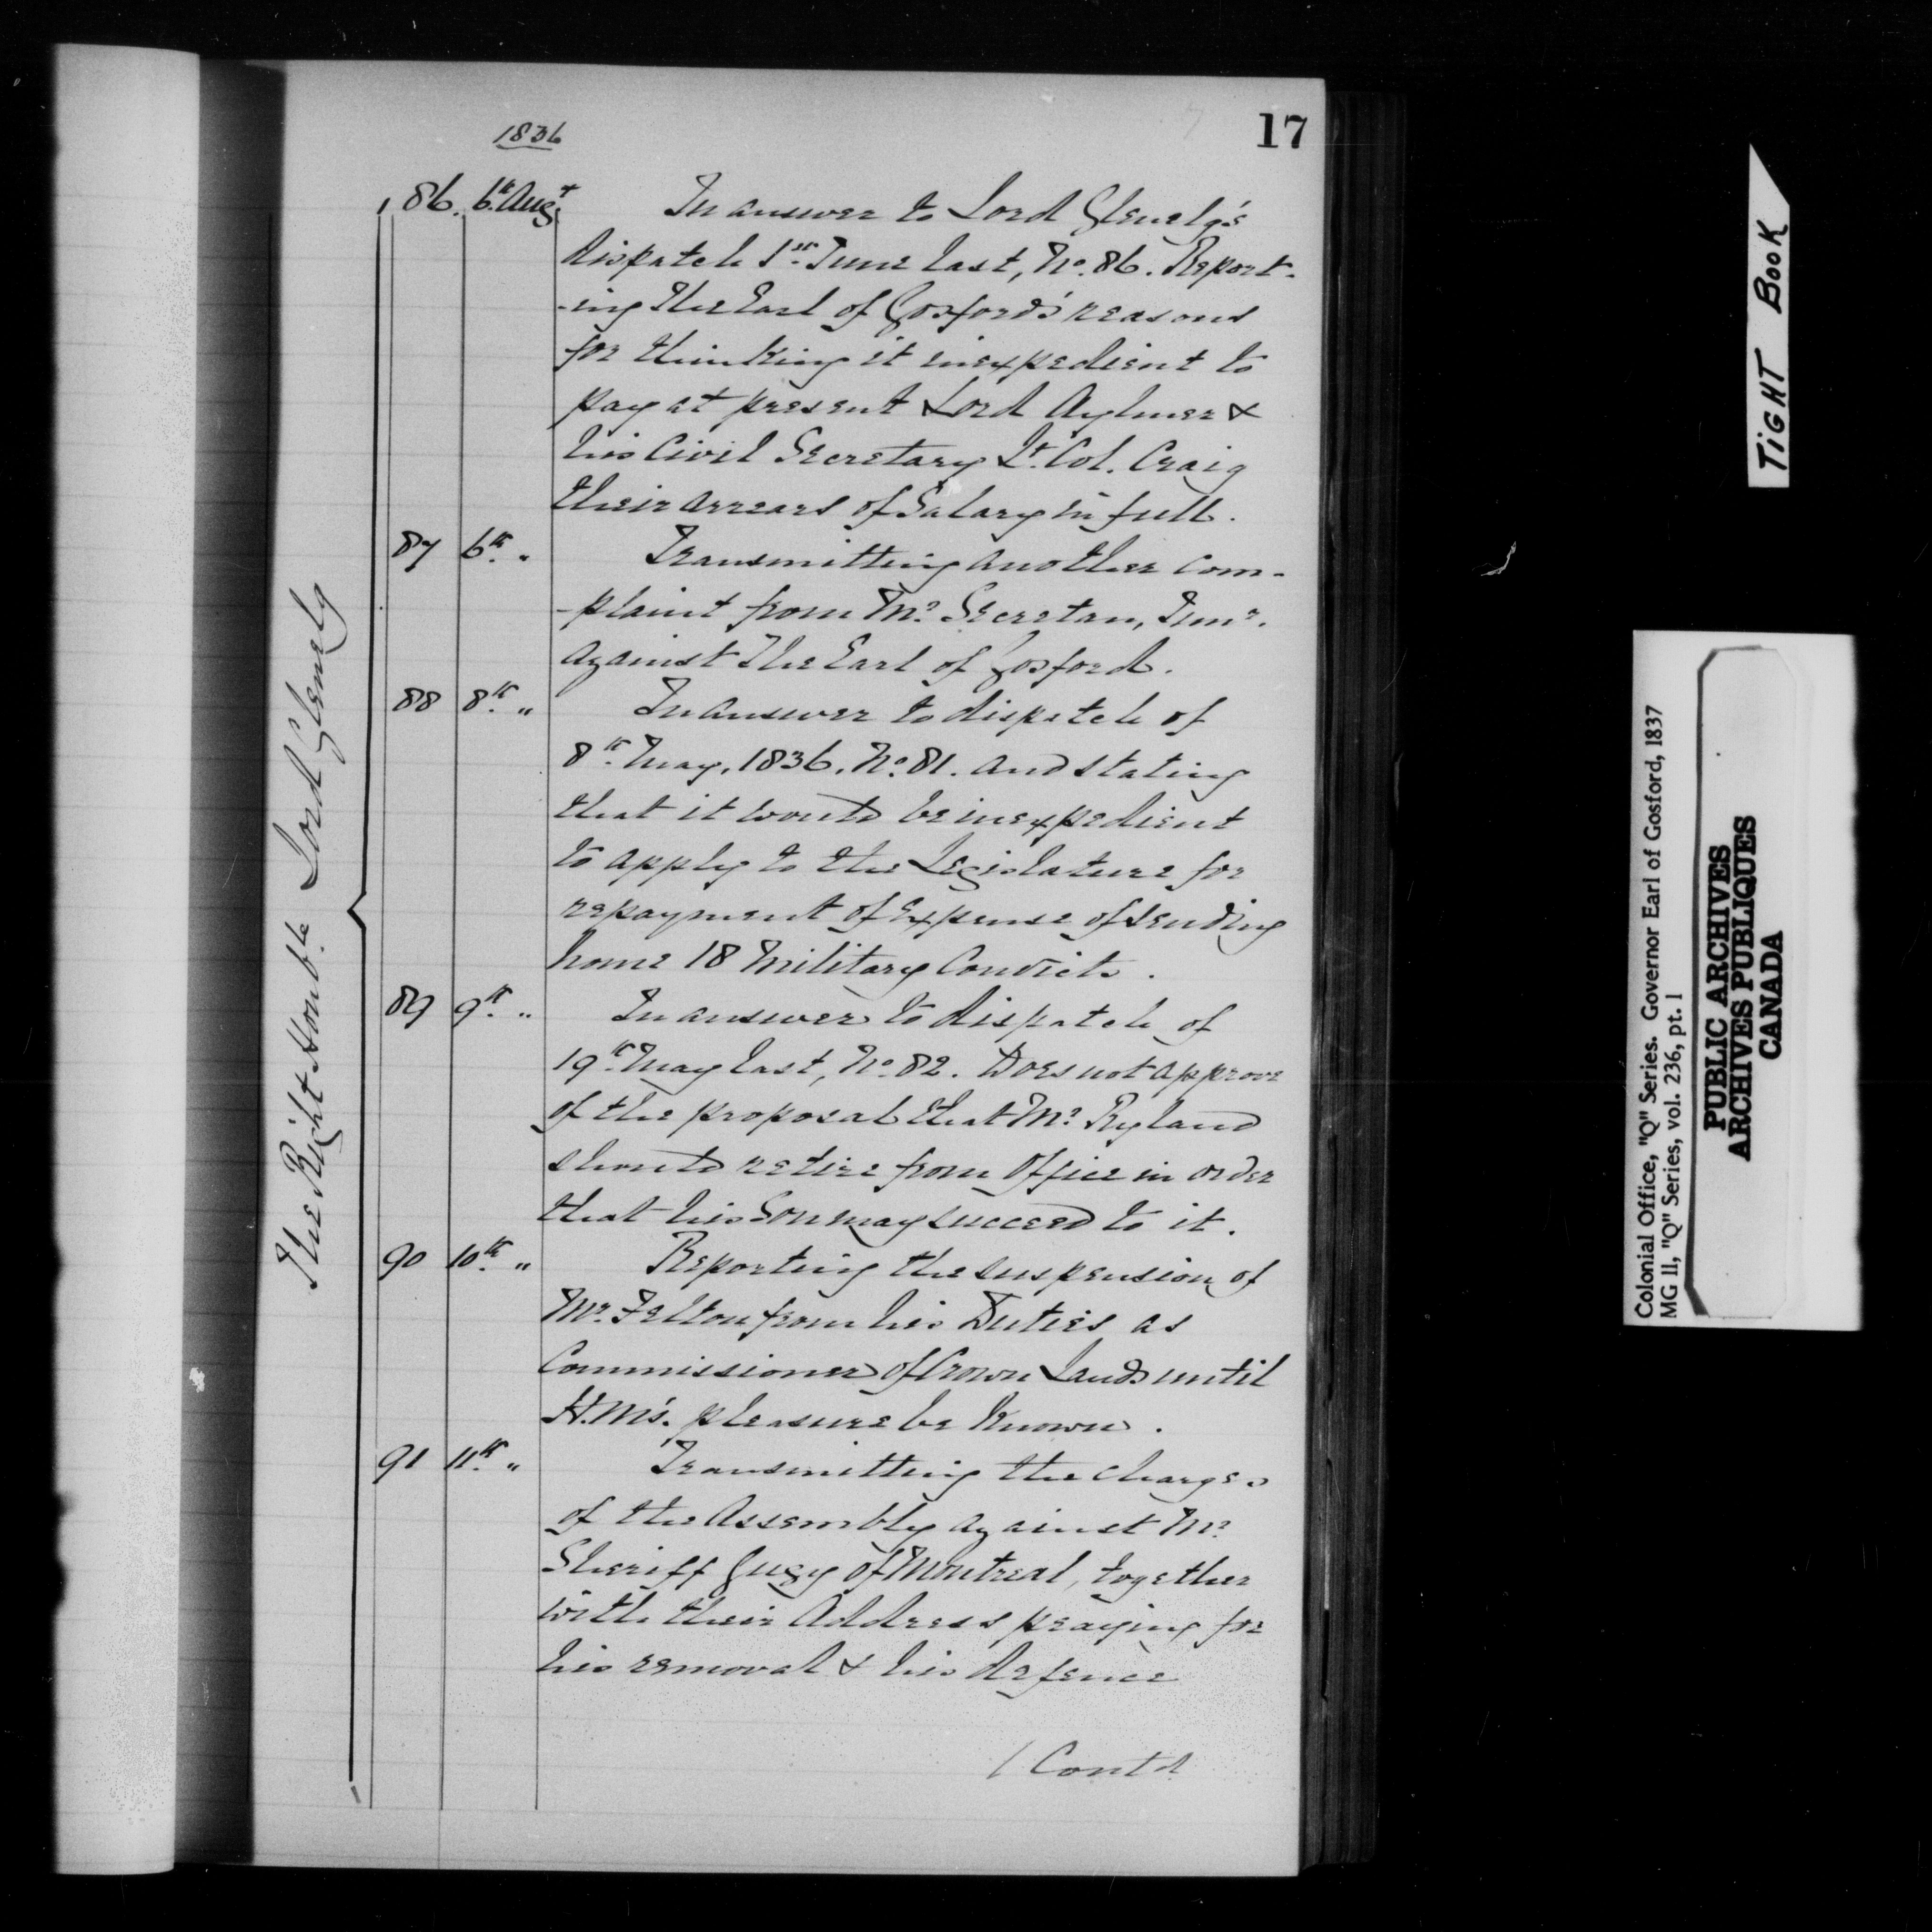 17
1836
The Right Honble. Lord Glenelg
86. 6th Augt. In answer to Lord Glenelg's
dispatch 1st June last, No. 86. Report-
-ing The Earl of Gosford's reasons
for thinking it inexpedient to
pay at present Lord Aylmer &
his Civil Secretary Lt. Col. Craig
their arrears of Salary in full.
87 6th " Transmitting another com-
-plaint from Mr. Secretan, Junr.
against The Earl of Gosford.
88 8th " In answer to dispatch of
8th May, 1836, No. 81. and stating
that it would be inexpedient
to apply to the Legislature for
repayment of Expense of sending
home 18 Military Convicts.
89 9th " In answer to dispatch of
19th May last, No. 82. Does not approve
of the proposal that Mr. Ryland
should retire from Office in order
that his Son may succeed to it.
90 10th " Reporting the suspension of
Mr. Felton from his Duties as
Commissioner of Crown Lands until
H.M's. pleasure be known.
91 11th " Transmitting the charges
of the Assembly against Mr.
Sheriff Gugy of Montreal, together
with their Address praying for
his removal & his defence
/ Contd
TIGHT BOOK
Colonial Office, "Q" Series. Governor Earl of Gosford, 1837
MG 11, "Q" Series, vol. 236, pt. 1
PUBLIC ARCHIVES
ARCHIVES PUBLIQUES
CANADA